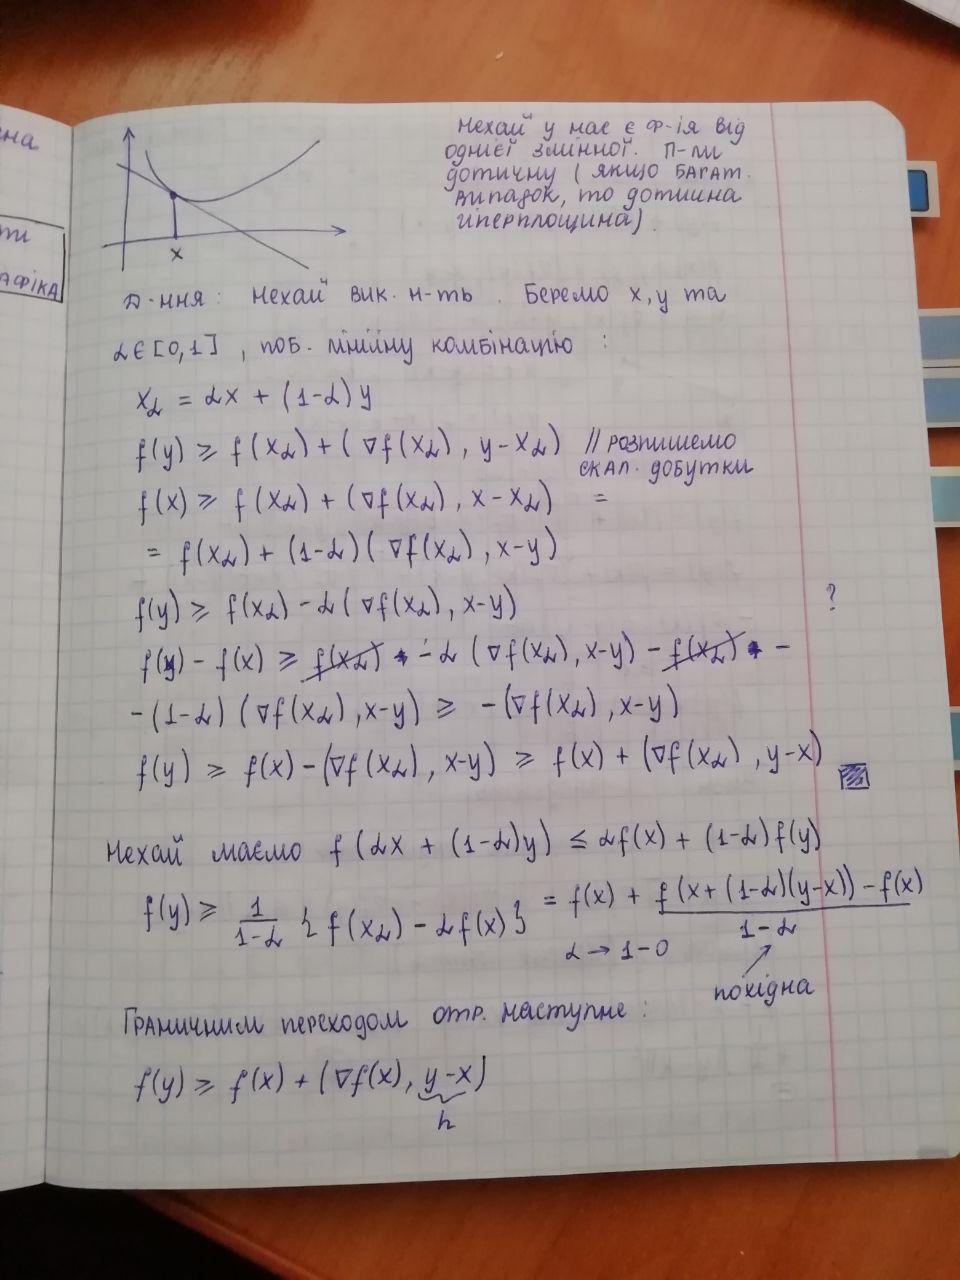 на
ти
АФІКА
Нехай у нас є ф-ія від
однієї змінної. П-ли
дотичну (якщо багат.
випадок, то дотична
гіперплощина).
x
Д-ння: Нехай вик. н-ть. Беремо x, y та
α∈[0,1], поб. лінійну комбінацію:
x_α = αx + (1-α)y
f(y) ≥ f(x_α) + (∇f(x_α), y-x_α) // розпишемо
скал. добутки
f(x) ≥ f(x_α) + (∇f(x_α), x-x_α) =
= f(x_α) + (1-α)(∇f(x_α), x-y)
f(y) ≥ f(x_α) - α(∇f(x_α), x-y) ?
f(y) - f(x) ≥ f(x_α) - α (∇f(x_α), x-y) - f(x_α) -
-(1-α)(∇f(x_α), x-y) ≥ -(∇f(x_α), x-y)
f(y) ≥ f(x) - (∇f(x_α), x-y) ≥ f(x) + (∇f(x_α), y-x)
Нехай маємо f(αx + (1-α)y) ≤ αf(x) + (1-α)f(y)
f(y) ≥ 1/(1-α) {f(x_α) - αf(x)} = f(x) + (f(x+(1-α)(y-x)) - f(x))/(1-α)
α → 1-0
похідна
Граничним переходом отр. наступне:
f(y) ≥ f(x) + (∇f(x), y-x)
h